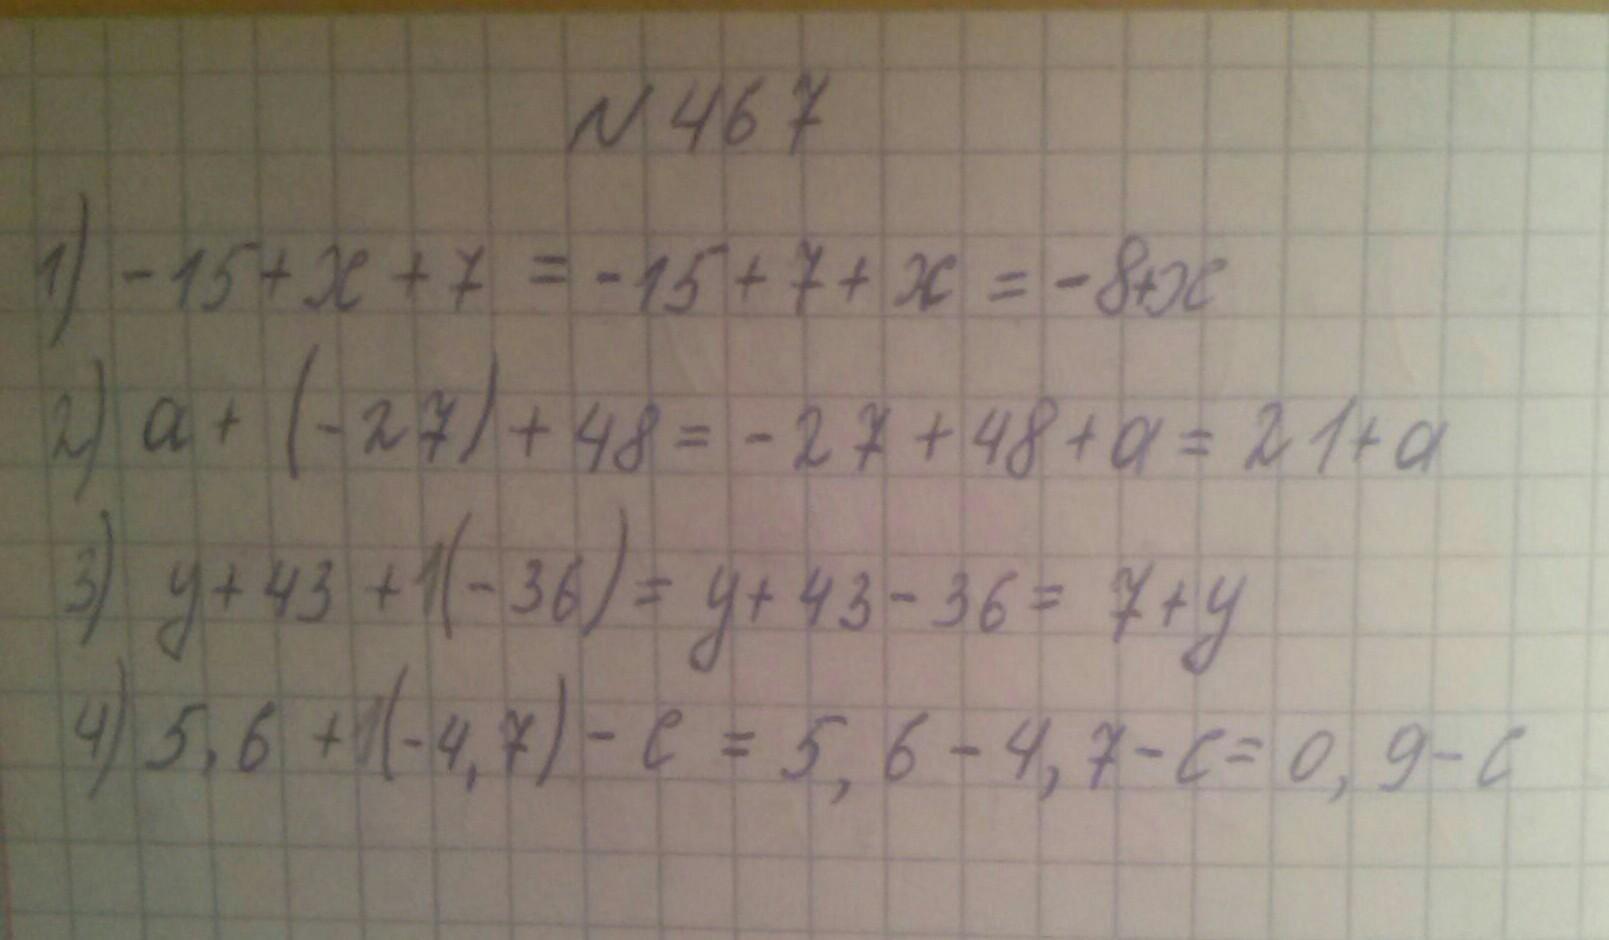 N 467
1) -15+x+7 = -15+7+x = -8+x
2) a+(-27)+48 = -27+48+a = 21+a
3) y+43+1(-36) = y+43-36 = 7+y
4) 5,6+1(-4,7)-c = 5,6-4,7-c = 0,9-c